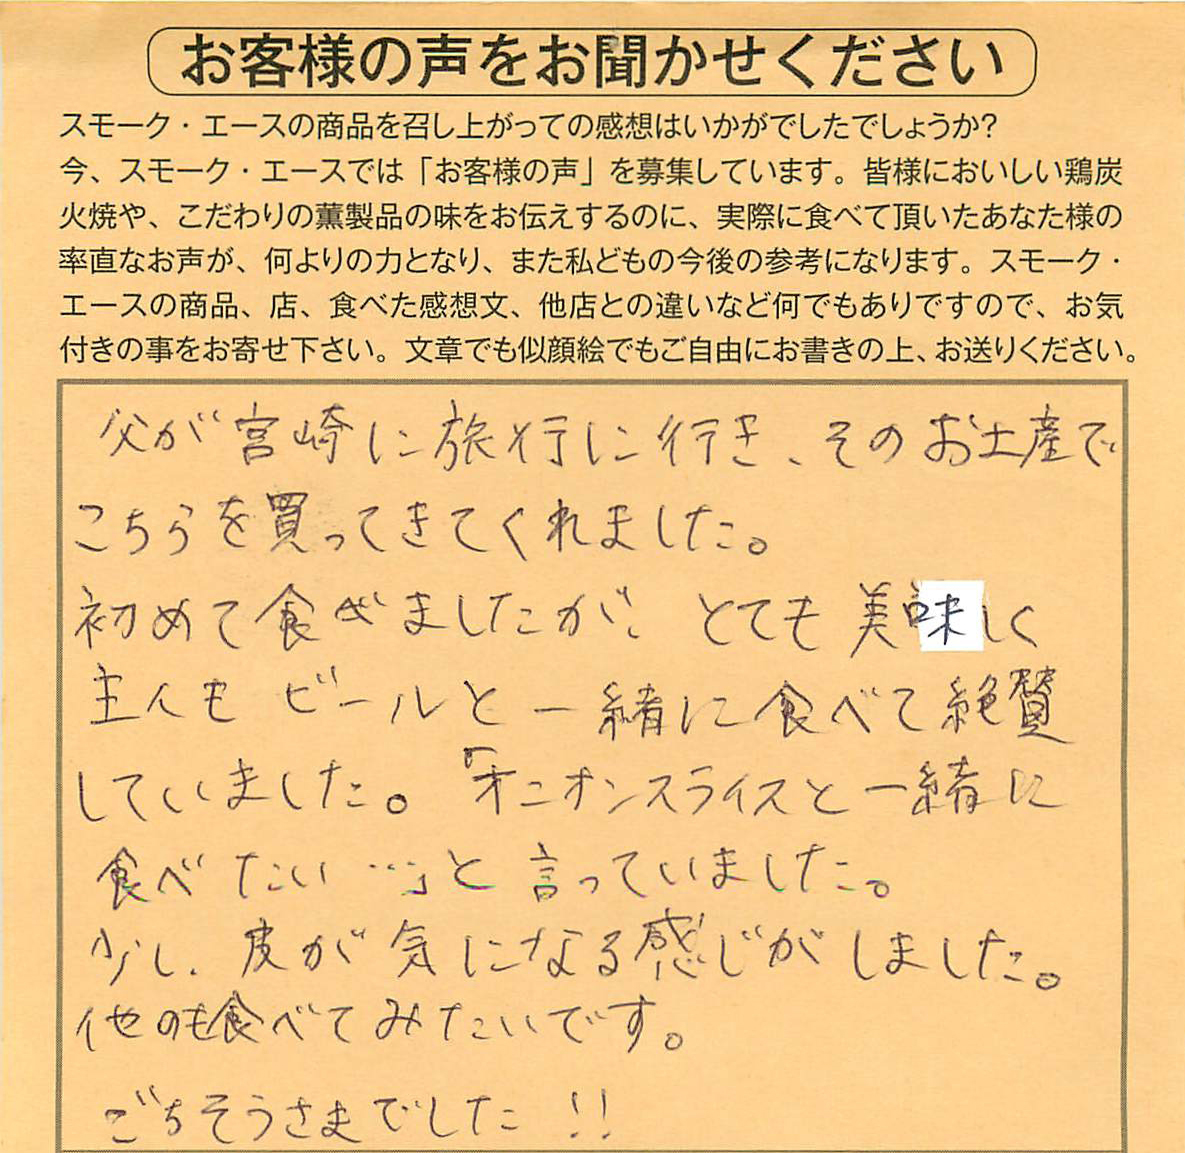 お客様の声をお聞かせください
スモーク・エースの商品を召し上がっての感想はいかがでしたでしょうか?
今、スモーク・エースでは「お客様の声」を募集しています。皆様においしい鶏炭
火焼や、こだわりの薫製品の味をお伝えするのに、実際に食べて頂いたあなた様の
率直なお声が、何よりの力となり、また私どもの今後の参考になります。スモーク・
エースの商品、店、食べた感想文、他店との違いなど何でもありですので、お気
付きの事をお寄せ下さい。文章でも似顔絵でもご自由にお書きの上、お送りください。
父が宮崎に旅行に行き、そのお土産で
こちらを買ってきてくれました。
初めて食べましたが、とても美味しく
主人も ビールと一緒に食べて絶賛
していました。「オニオンスライスと一緒に
食べたい…」と言っていました。
少し、皮が気になる感じがしました。
他のも食べてみたいです。
ごちそうさまでした!!